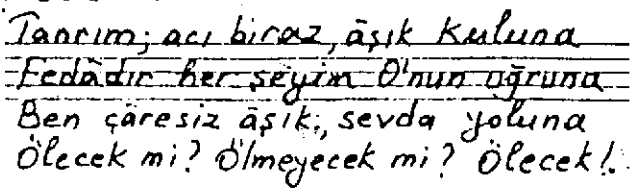 Tanrım; acı biraz, âşık kuluna
Fedâdır her şeyim O'nun uğruna
Ben çâresiz âşık;, sevda yoluna
Ölecek mi? Ölmeyecek mi? Ölecek!.